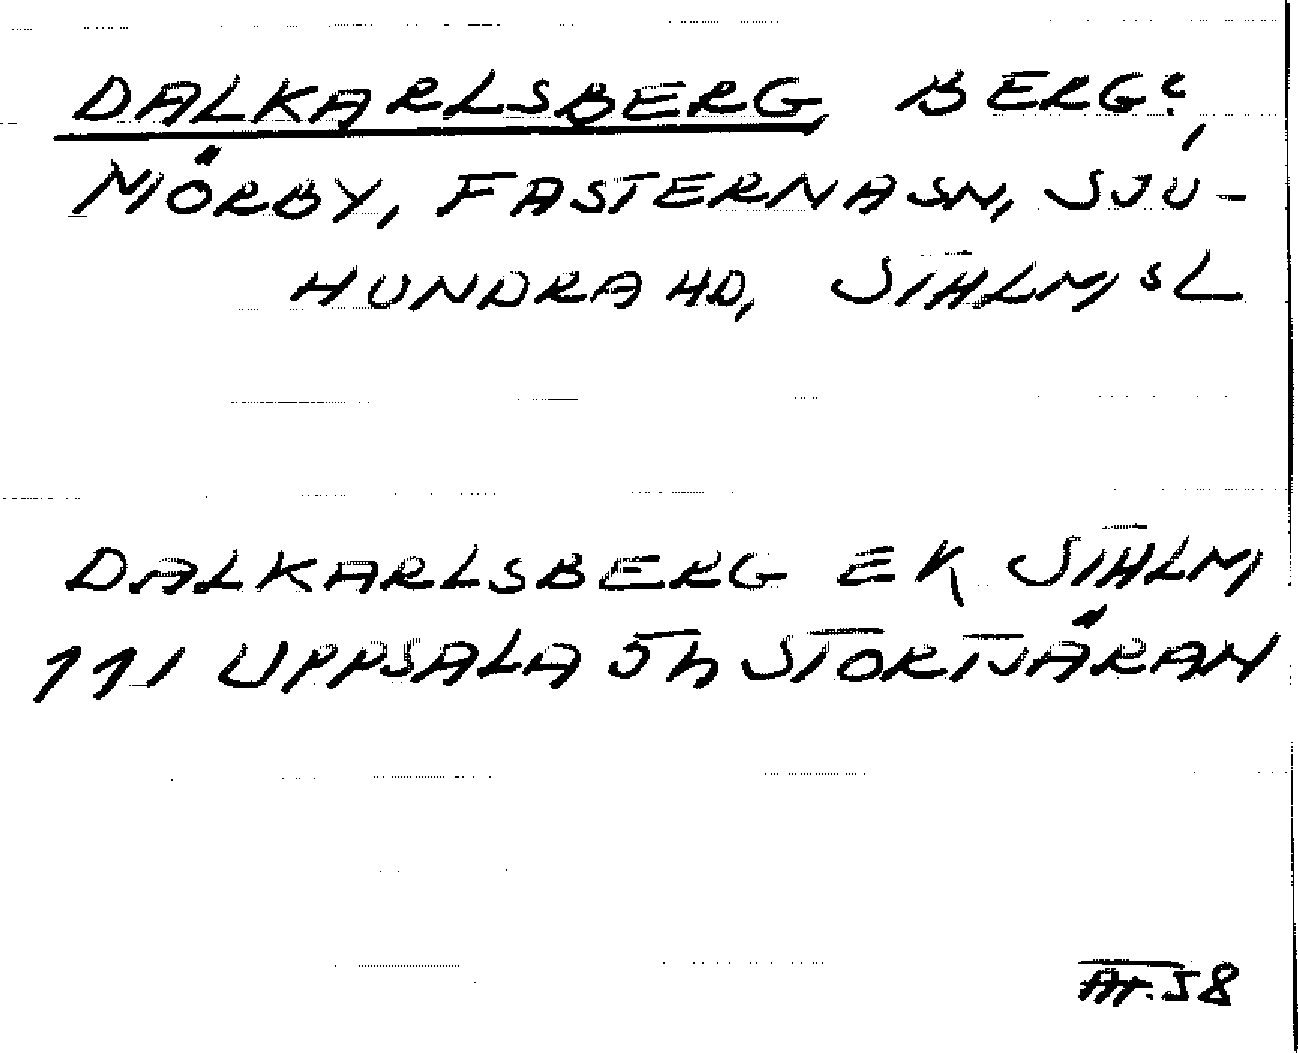 DALKARLSBERG, BERG?,
MÖRBY, FASTERNA SN, SJU-
HUNDRA HD, STHLMS L
DALKARLSBERG EK STHLM
11I UPPSALA 5h STORTJÄRAN